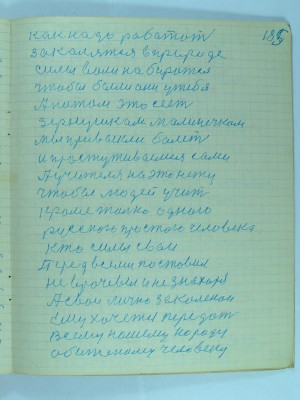 185
как надо работот
закалятся в природе
силы воли набиратся
чтобы были ани у тебя
А патом это сеет
зернушкам малинечкам
мы привыкли балет
и простуживаемся сами
А учителя на это нету
чтобы людей учит
кроме толко одного
русского простого человека
кто силы свои
Перед всеми поставил
не врачевыи и не знахаря
А свои лично закаленои
ему хочется передат
всему нашему народу
обиженому человеку